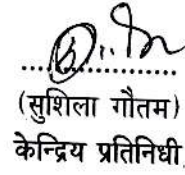 (सुशिला गौतम)
केन्द्रिय प्रतिनिधी